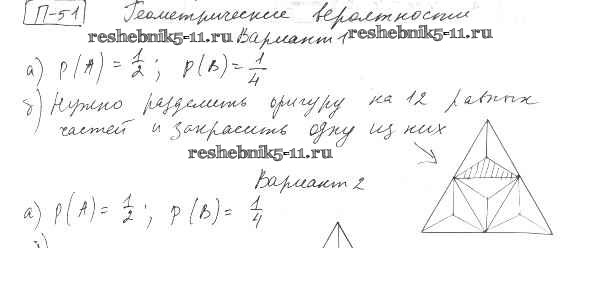 П-51 Геометрические вероятности
reshebnik5-11.ru Вариант 1 reshebnik5-11.ru
а) P(A) = 1/2 ; P(B) = 1/4
б) Нужно разделить фигуру на 12 равных
частей и закрасить одну из них
reshebnik5-11.ru
Вариант 2
а) P(A) = 1/2 ; P(B) = 1/4